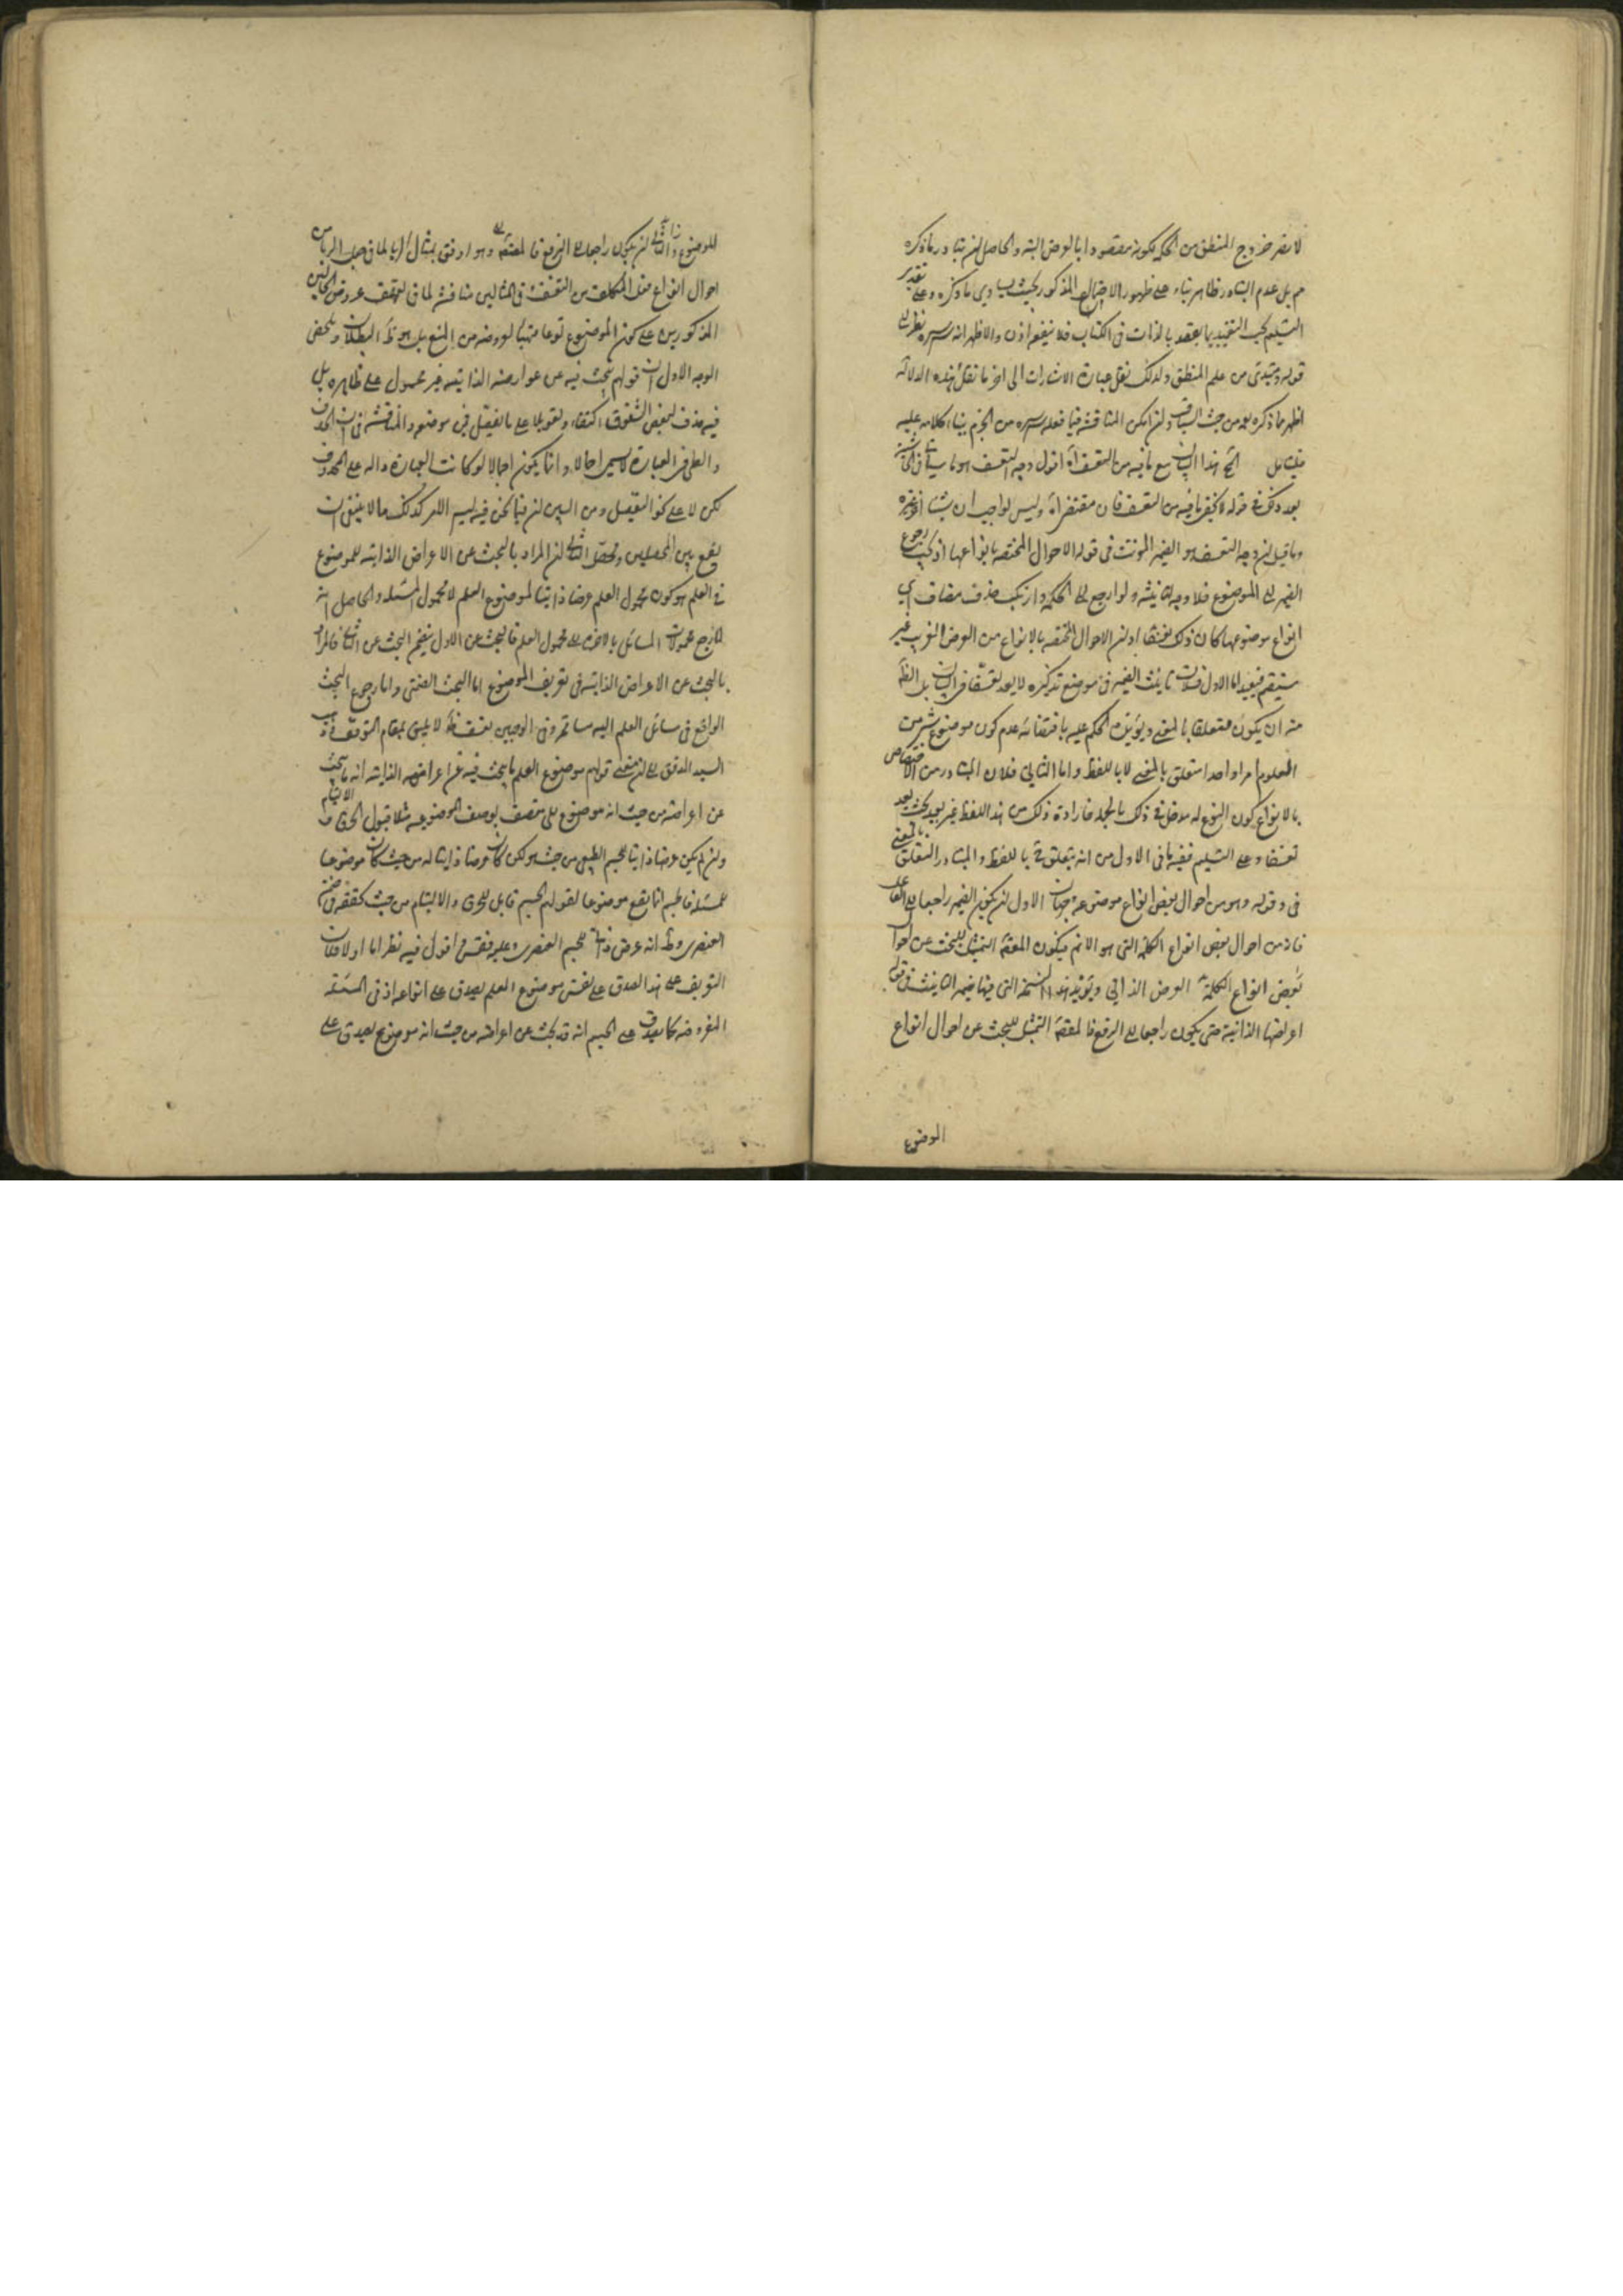 لا يضر خروج المنطق من الحكمة لكونه مقصودا بالعرض البتة والحاصل ان تبادر ما ذكره
ثم بل عدم التبادر ظاهر بناء على ظهور الاحتمال المذكور بحيث يساوي ما ذكره وعلى تقدير
التسليم يجب التقييد بما يعقد بالذات في الكتاب فلا ينفع اذن والاظهر انه سره نظر الى
قوله ويبتدئ من علم المنطق ولذلك نقل عبارة الاشارات الى اخر ما نقل لهذه الدلالة
اظهر ما ذكره بعد من حيث السياق وان امكن المناقشة فيما فعله سره من الجزم بناء كلامه عليه
فليتامل هذا البيان مع ما فيه من التعسف اه اقول وجه التعسف هو ما سياتي في الحاشية
بعد ذلك في قوله لا يخفى ما فيه من التعسف فان مقتضى اه وليس لواجب ان
وما قيل ان وجه التعسف هو الضمير المونث في قوله الاحوال المختصة بانواعها اذ يجب رجوع
الضمير الى الموضوع فلا وجه لتانيثه ولو ارجع الى الحكمة وارتكب حذف مضاف اي
انواع موضوعها كان ذلك تعسفا او ان الاحوال المختصة بالانواع من العرض الغريب غير
مستقيم فبعيد اما الاول فلان تانيث الضمير في موضع تذكيره لا يعد تعسفا في البيان بل الظ
منه ان يكون متعلقا بالمعنى ويؤيده الحكم عليه باقتضائه عدم كون موضوع شيء من
العلوم امرا واحدا متعلق بالمعنى لا باللفظ واما الثاني فلان المتبادر من الاختصاص
بالانواع كون النوع له مدخل في ذلك بالجملة فارادة ذلك من هذا اللفظ غير بعيد بحيث يعد
تعسفا وعلى التسليم ففيه ما في الاول من انه يتعلق باللفظ والمتبادر التعلق بالمعنى
في وقوله وهو من احوال بعض انواع موضوعه جهان الاول ان يكون الضمير راجعا الى الفاعل
فانه من احوال بعض انواع الكلمة التي هو الاسم فيكون المقصد التمثيل للبحث عن احوال
بعض انواع الكلمة العرض الذاتي ويؤيد هذا النسخة التي فيها ضمير التانيث في قوله
اعراضها الذاتية حتى يكون راجعا الى الرفع فالمقصد التمثيل للبحث عن احوال انواع
الموضوع
للموضوع والثاني ان يكون راجعا الى الرفع فالمقصد وهو اوفق بمثال
احوال انواع من التعسف في المثالين مناقشة لما في تحقق عروض الحالين
المذكورين على كون الموضوع نوعا متهيئا لعروضه من المنع بل هو ظ البطلان وملخص
الوجه الاول ان قولهم يبحث فيه عن عوارضه الذاتية غير محمول على ظاهره بل
فيه حذف لبعض الشقوق اكتفاء وتعويلا على تفصيل في موضعه والمناقشة في ان الحذف
والطي في العبارة لا يسمى اجمالا وانما يكون اجمالا لو كانت العبارة دالة على المحذوف
لكن لا على نحو التفصيل ومن البين ان فيما نحن فيه ليس الامر كذلك مما لا ينبغي ان
يقع بين المحصلين ومحصل الثاني ان المراد بالبحث عن الاعراض الذاتية للموضوع
في العلم هو كون محمول العلم عرضا ذاتيا لموضوع العلم لا محمول المسئلة والحاصل انه
لما رجع محمولات المسائل بالاخرة الى محمول العلم فالبحث عن الاول يتضمن البحث عن الثاني فالمراد
بالبحث عن الاعراض الذاتية في تعريف الموضوع اما البحث الضمني واما رجوع البحث
الواقع في مسائل العلم اليه مسامحة وفي الوجهين تعسف ظ لا يليق بمقام التعريف وذهب
السيد المدقق الى ان معنى قولهم موضوع العلم ما يبحث فيه عن اعراضه الذاتية انه ما يبحث
عن اعراضه من حيث انه موضوع اي متصف بوصف الموضوعية مثلا قبول الخرق والالتيام
وان لم يكن عرضا ذاتيا للجسم الطبيعي من حيث هو لكن كان عرضا ذاتيا له من حيث كان موضوعا
للمسئلة فالجسم انما يقع موضوعا لقولهم الجسم قابل للخرق والالتيام من حيث تحققه في ضمن
العنصري وظ انه عرض ذاتي للجسم العنصري وعليه فقس اقول فيه نظر اما اولا فلان
التعريف على هذا الصدق على نفس موضوع العلم يصدق على انواعه اذ في المسئلة
المفروضة كما يصدق على الجسم انه قد يبحث عن اعراضه من حيث انه موضوع يصدق على